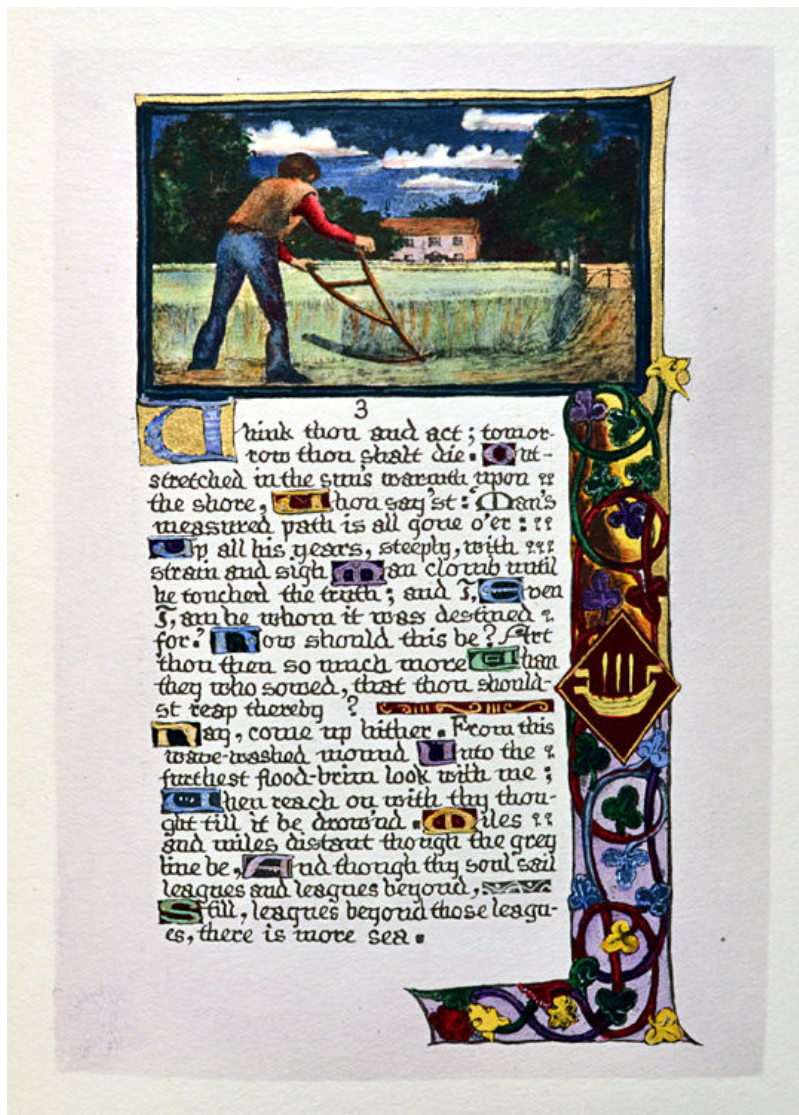 3
Think thou and act ; tomor-
row thou shalt die. Out-
stretched in the sun's warmth upon
the shore, Thou say'st : 'Man's
measured path is all gone o'er :
Up all his years, steeply, with
strain and sigh Man clomb until
he touched the truth ; and I, Even
I, am he whom it was destined
for.' How should this be ? Art
thou then so much more Than
they who sowed, that thou should-
st reap thereby ?
Nay, come up hither. From this
wave-washed mound Unto the
furthest flood-brim look with me ;
Then reach on with thy thou-
ght till it be drown'd. Miles
and miles distant though the grey
line be, And though thy soul sail
leagues and leagues beyond,
Still, leagues beyond those leagu-
es, there is more sea.